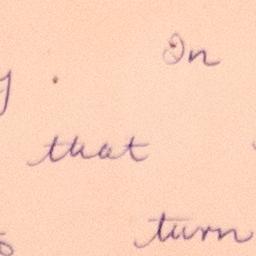 . In
that
turn